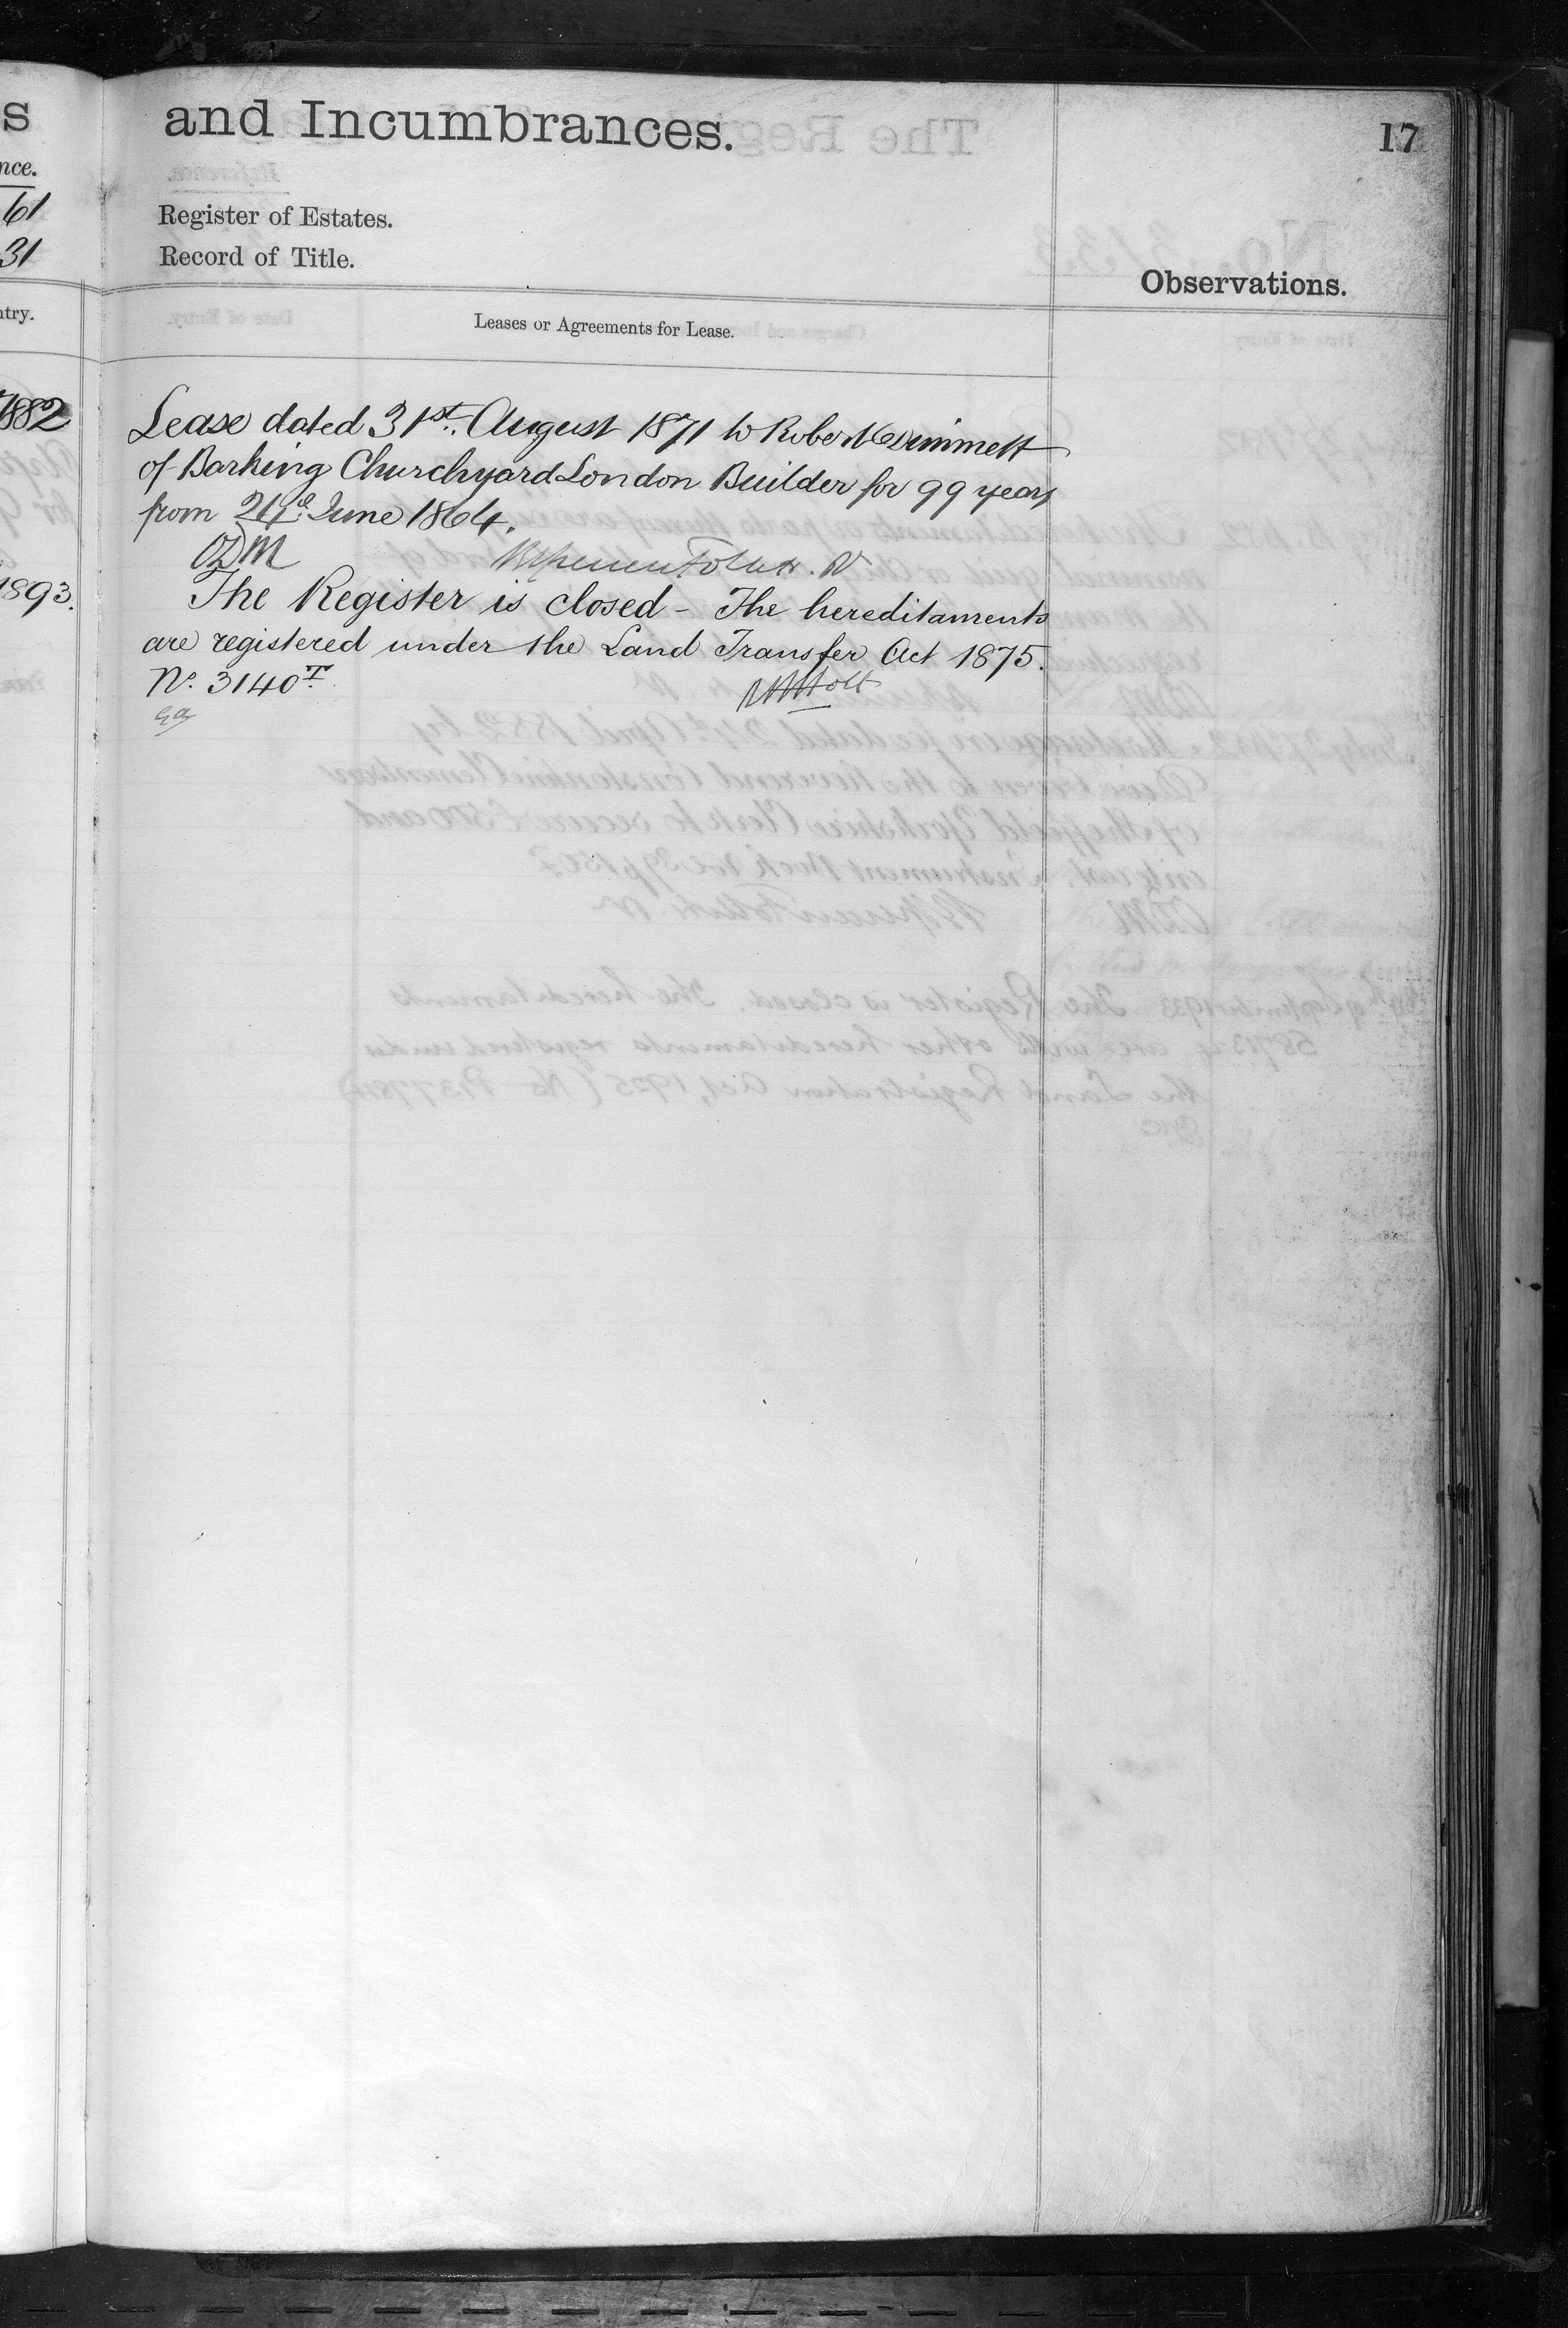 and Incumbrances.
17
Register of Estates.
Record of Title.
Observations.
Leases or Agreements for Lease.
Lease dated 31st. August 1871 to Robert
of Barking Churchyard London Builder for 99 years
from 24th June 1864.
The Register is closed - The hereditaments
are registered under the Land Transfer Act 1875.
No. 3140
s
nce.
61
31
ntry.
1882
1893.